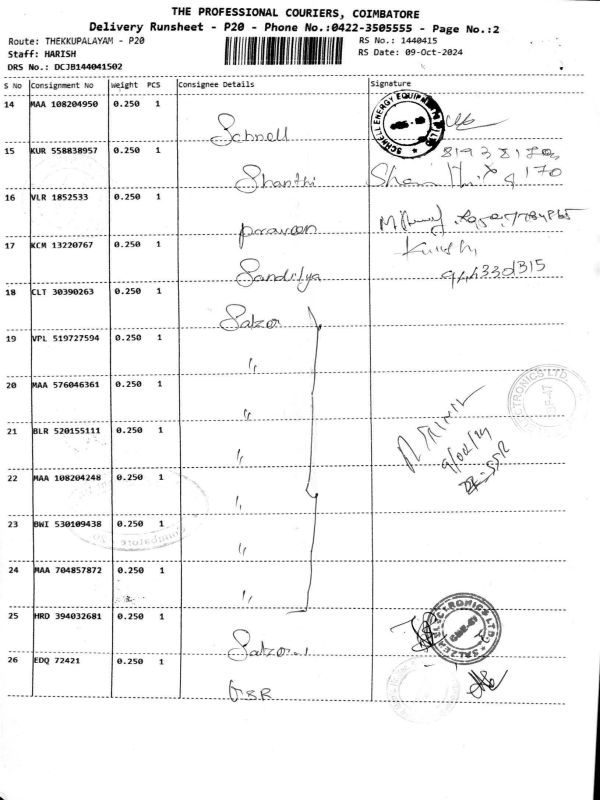 THE PROFESSIONAL COURIERS, COIMBATORE
Delivery Runsheet - P20 - Phone No.:0422-3505555 - Page No.:2
Route: THEKKUPALAYAM - P20 RS No.: 1440415
Staff: HARISH RS Date: 09-Oct-2024
DRS No.: DCJB144041502
S No Consignment No Weight PCS Consignee Details Signature
14 MAA 108204950 0.250 1
Schnell
SCHNELL ENERGY EQUIPMENTS
15 KUR 558838957 0.250 1
Shanthi
16 VLR 1852533 0.250 1
praveen
17 KCM 13220767 0.250 1
Sandilya
18 CLT 30390263 0.250 1
Salzer
19 VPL 519727594 0.250 1
"
20 MAA 576046361 0.250 1
"
21 BLR 520155111 0.250 1
"
22 MAA 108204248 0.250 1
"
23 BWI 530109438 0.250 1
"
24 MAA 704857872 0.250 1
"
25 HRD 394032681 0.250 1
Salzer-1
SALZER ELECTRONICS LTD
26 EDQ 72421 0.250 1
GSR